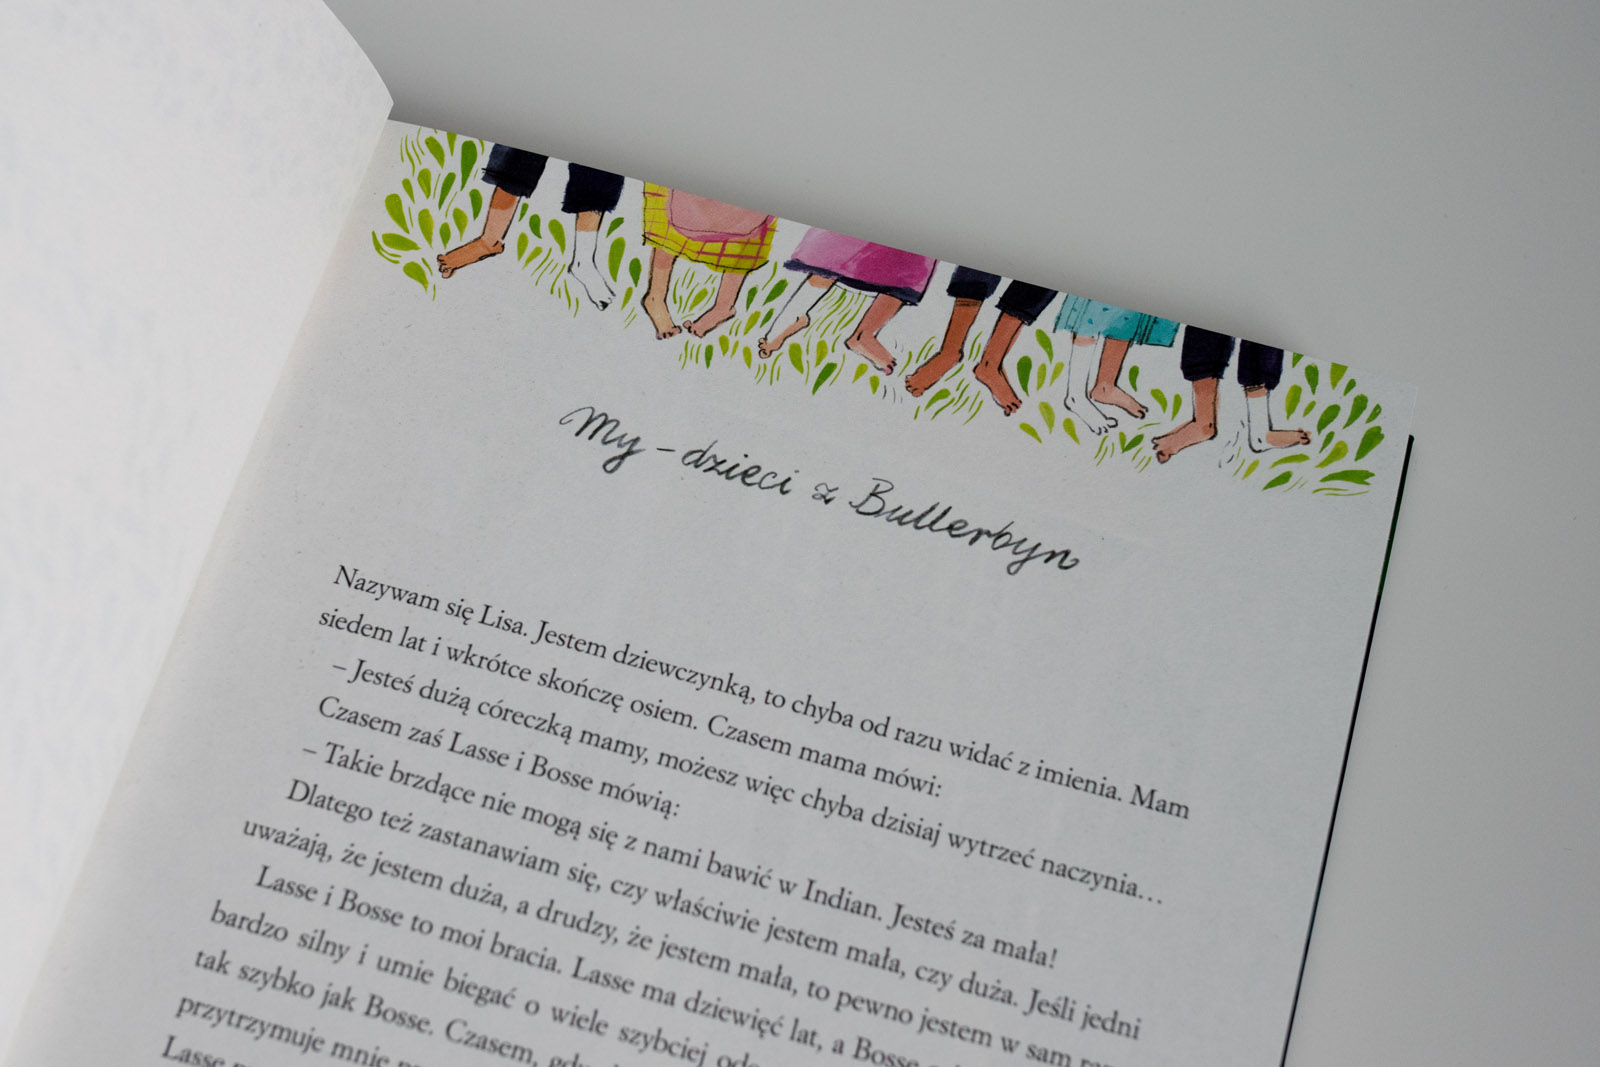 My – dzieci z Bullerbyn
Nazywam się Lisa. Jestem dziewczynką, to chyba od razu widać z imienia. Mam
siedem lat i wkrótce skończę osiem. Czasem mama mówi:
– Jesteś dużą córeczką mamy, możesz więc chyba dzisiaj wytrzeć naczynia…
Czasem zaś Lasse i Bosse mówią:
– Takie brzdące nie mogą się z nami bawić w Indian. Jesteś za mała!
Dlatego też zastanawiam się, czy właściwie jestem mała, czy duża. Jeśli jedni
uważają, że jestem duża, a drudzy, że jestem mała, to pewno jestem w sam
Lasse i Bosse to moi bracia. Lasse ma dziewięć lat, a Bosse
bardzo silny i umie biegać o wiele szybciej
tak szybko jak Bosse. Czasem,
przytrzymuje mnie
Lasse